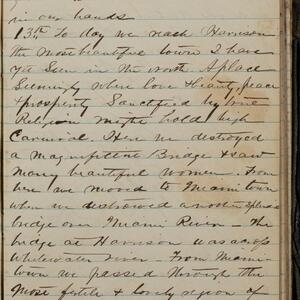 in our hands
13th To day we reach Harrison
the most beautiful town I have
yet seen in the north. A place
seemingly where love & beauty, peace
& prosperity Sanctified by true
Religion might hold high
Carnival. Here we destroyed
a magnifficent Bridge & saw
many beautiful women. From
here we moved to Miamitown
when we destroyed another splendid
bridge over Miami River – The
bridge at Harrison was across
Whitewater river – From Miami-
town we passed through the
most fertile & lovely region of